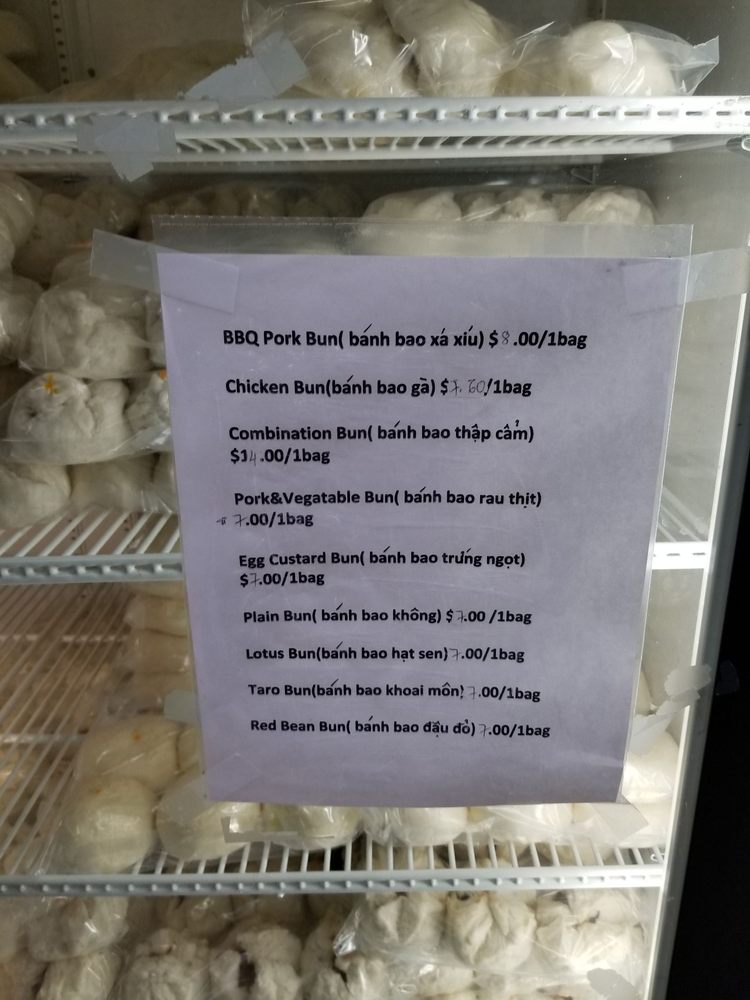 BBQ Pork Bun( bánh bao xá xíu) $8.00/1bag
Chicken Bun(bánh bao gà) $7.60/1bag
Combination Bun( bánh bao thập cẩm)
$14.00/1bag
Pork&Vegatable Bun( bánh bao rau thịt)
7.00/1bag
Egg Custard Bun( bánh bao trứng ngọt)
$7.00/1bag
Plain Bun( bánh bao không) $7.00 /1bag
Lotus Bun(bánh bao hạt sen) 7.00/1bag
Taro Bun(bánh bao khoai môn) 7.00/1bag
Red Bean Bun( bánh bao đậu đỏ) 7.00/1bag